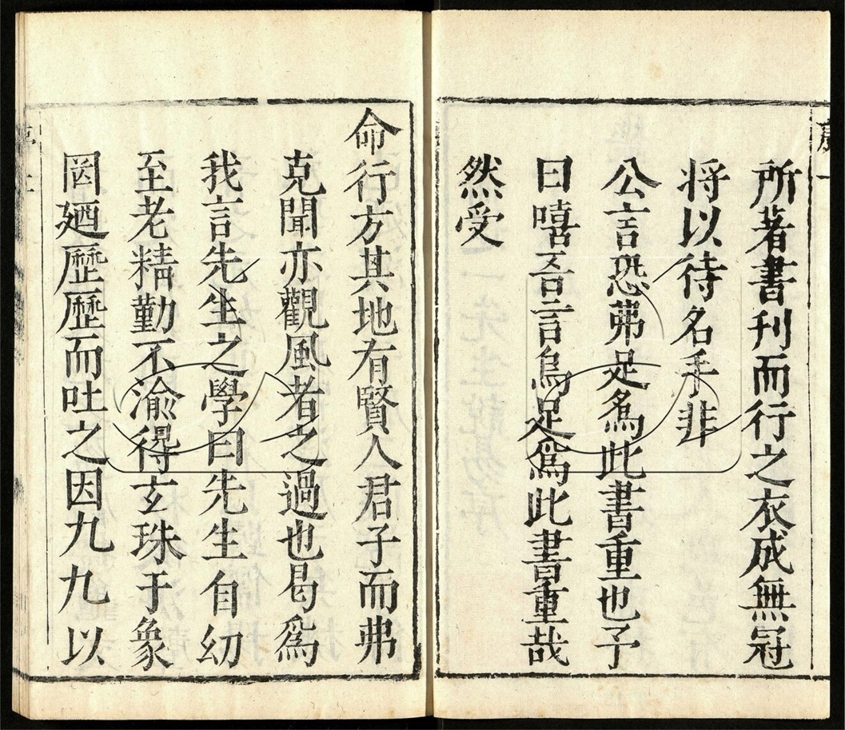 所著書刊而行之衣成無冠
将以待名手非
公言恐弗足為此書重也予
曰嘻吾言烏足爲此書重哉
然受
命行方其地有賢人君子而弗
克聞亦觀風者之過也曷爲
我言先生之學曰先生自幼
至老精勤不渝得玄珠于象
罔廼歷歷而吐之因九九以